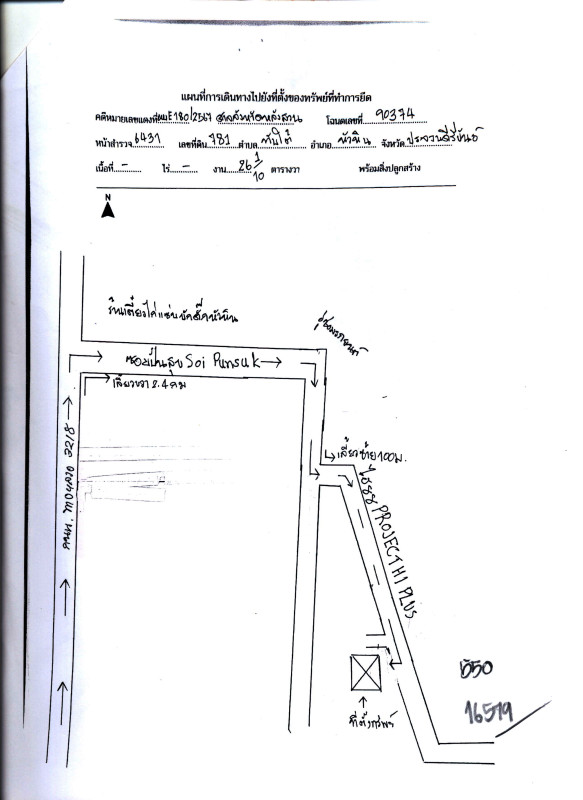 แผนที่การเดินทางไปยังที่ตั้งของทรัพย์ที่ทำการยึด
คดีหมายเลขแดงที่ ผบE180/2567 ศาลจังหวัดหลังสวน โฉนดเลขที่ 90374
หน้าสำรวจ 6431 เลขที่ดิน 781 ตำบล ทับใต้ อำเภอ หัวหิน จังหวัด ประจวบคีรีขันธ์
เนื้อที่ - ไร่ - งาน 26 1/10 ตารางวา พร้อมสิ่งปลูกสร้าง
N
ร้านเตี๋ยงไก่แซ่บจัดดั๊กหัวหิน
ซอยปั้นสุข Soi Punsuk
เลี้ยวขวา 2.4 กม
เลี้ยวซ้าย 100 ม.
PROJECT H1 PLUS
ถนน ทางหลวง 3218
ที่ตั้งทรัพย์
550
16579